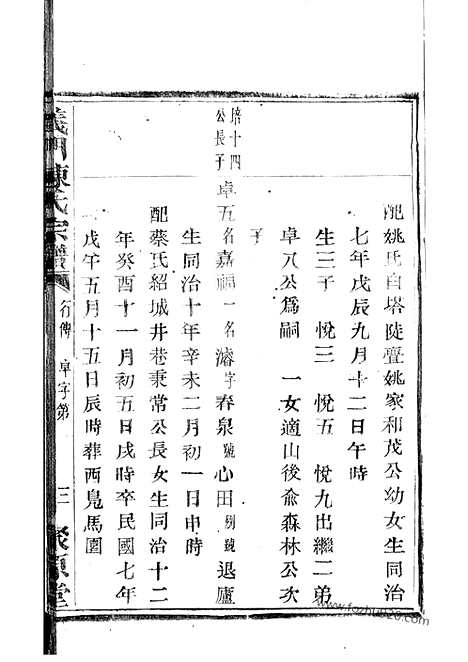 配姚氏白塔陡亹姚家和茂公幼女生同治
七年戊辰九月十二日午時
生三子 悅三 悅五 悅九出繼二弟
卓八公爲嗣 一女適山後俞森林公次
子
培十四公長子
卓五名嘉福一名濬字春泉號心田別號退廬
生同治十年辛未二月初一日申時
配蔡氏紹城井巷秉常公長女生同治十二
年癸酉十一月初五日戌時卒民國七年
戊午五月十五日辰時葬西鳧馬園
義門陳氏宗譜 行傳 卓字第 三 聚原堂
www.fozhuhao20.com